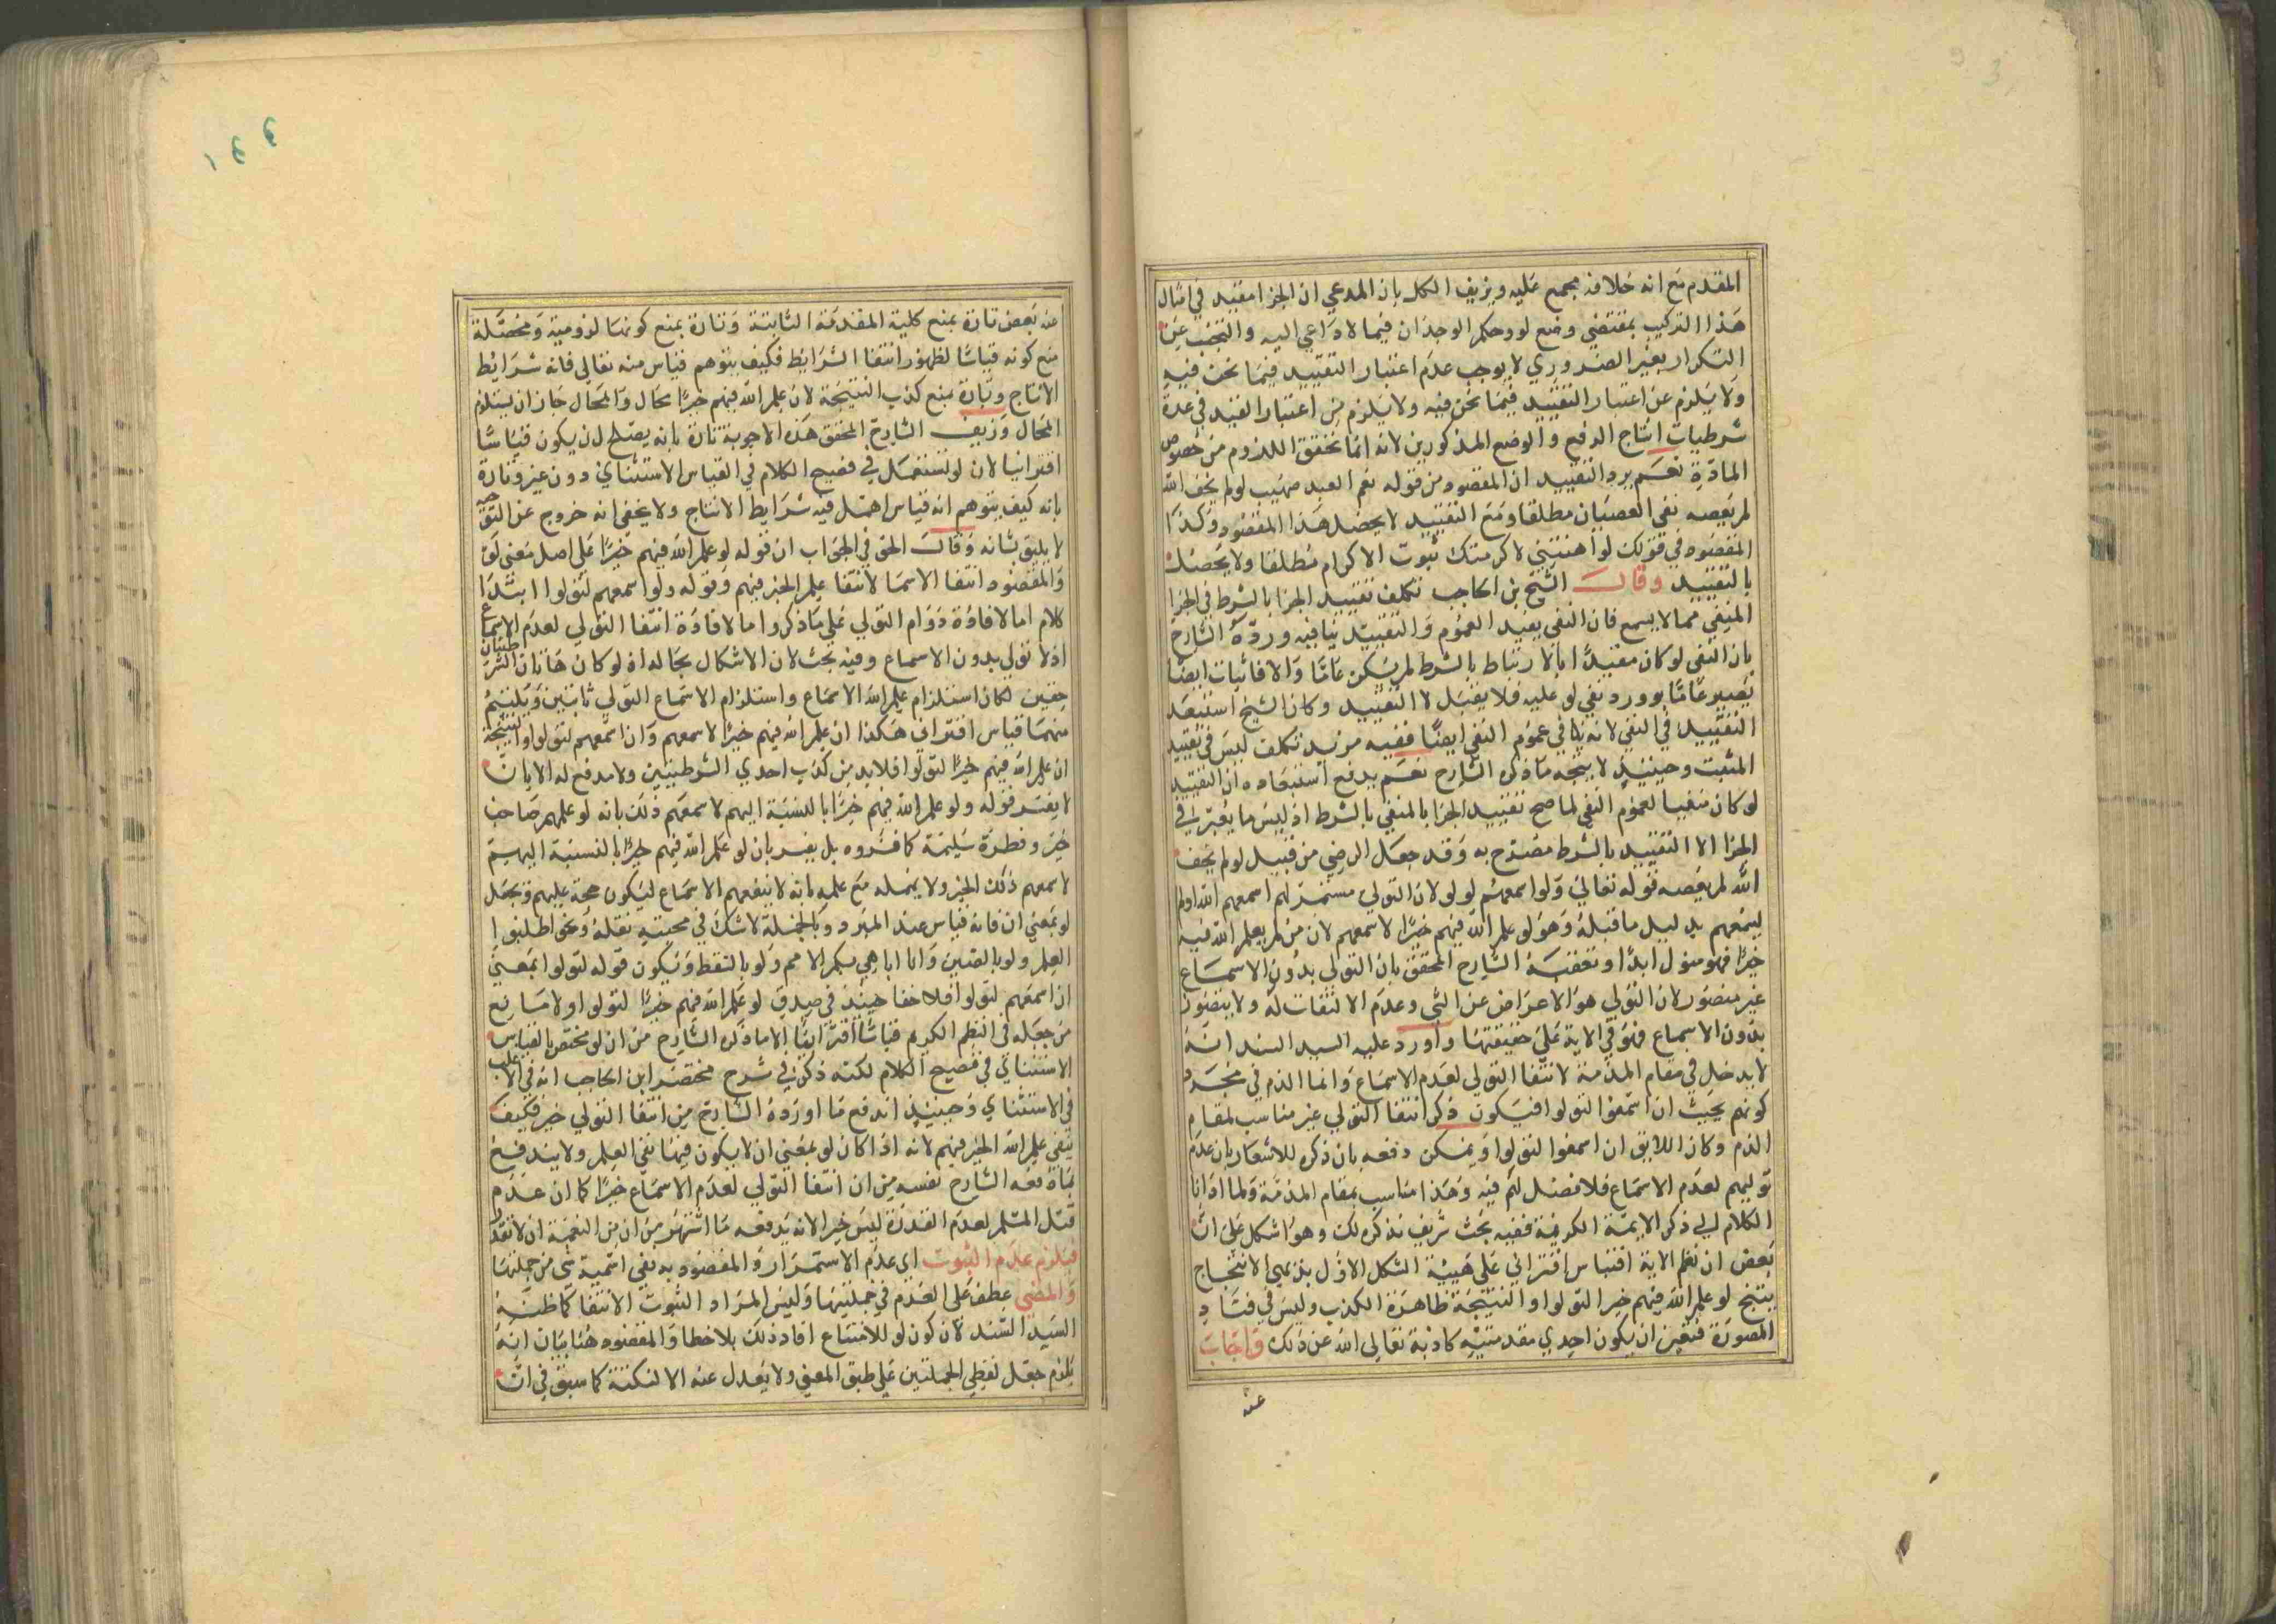 المقدم مع انه خلافه مجمع عليه ويزيف الكل بان المدعي ان الجزا مقيد في امثال
هذا التركيب بمقتضي وضع لو وحكم الوجدان فيما لا داعي اليه والتجنب عن
التكرار بغير الضروري لا يوجب عدم اعتبار التقييد فيما نحن فيه
ولا يلزم عن اعتبار التقييد فيما نحن فيه ولا يلزم من اعتبار القيد في عدة
شرطيات انتاج الرفع والوضع المذكورين لانه انما تحقق اللزوم من خصوص
المادة نعم يرد التقييد ان المقصود من قوله نعم العبد صهيب لو لم يخف الله
لم يعصه نفي العصيان مطلقا ومع التقييد لا يحصل هذا المقصود وكذا
المقصود في قولك لو اهنتني لاكرمتك ثبوت الاكرام مطلقا ولا يحصل
بالتقييد وقال الشيخ بن الحاجب تكلف تقييد الجزا بالشرط في الجزا
المنفي مما لا يسمع فان النفي يفيد العموم والتقييد ينافيه ورده الشارح
بان النفي لو كان مقيدا بالارتباط بالشرط لم يكن عاما والا فاثبات ايضا
يصير عاما بورود نفي لو عليه فلا يقبل لا التقييد وكان الشيخ استبعد
التقييد في النفي لانه ينافي عموم النفي ايضا ففيه مزيد تكلف ليس في تقييد
المثبت وحينيذ لا يتجه ما ذكره الشارح نعم يدفع استبعاده ان التقييد
لو كان منفيا لعموم النفي لما صح تقييد الجزا بالمنفي بالشرط اذ ليس ما يعتبر في
الجزا الا التقييد بالشرط مصرح به وقد جعل الرضي من قبيل لو لم يخف
الله لم يعصه قوله تعالي ولو اسمعهم لو لو لان التولي مستمر لهم اسمعهم الله او لم
يسمعهم بدليل ما قبله وهو لو علم الله فيهم خيرا لاسمعهم لان من لم يعلم الله فيه
خيرا فهو متول ابدا وتعقبه الشارح المحقق بان التولي بدون الاسماع
غير متصور لان التولي هو الاعراض عن الشي وعدم الالتفات له ولا يتصور
بدون الاسماع فهو في الاية علي حقيقتها واورد عليه السيد السند انه
لا يدخل في مقام المذمة لانتفا التولي لعدم الاسماع وانما الذم في مجرد
كونهم بحيث ان اسمعوا لتولوا فيكون ذكر انتفا التولي غير مناسب لمقام
الذم وكان اللايق ان اسمعوا لتولوا ويمكن دفعه بان ذكره للاشعار بان عدم
توليهم لعدم الاسماع فلا فضل لهم فيه وهذا مناسب بمقام المذمة ولما ادانا
الكلام الي ذكر الاية الكريمة ففيه بحث شريف نذكره لك وهو اشكل علي ان
بعض ان نظم الاية اقتباس اقتراني علي هيئة الشكل الاول بديهي الانتاج
ينتج لو علم الله فيهم خير التولوا والنتيجة ظاهرة الكذب وليس في فساد
الصورة فتعين ان يكون احدي مقدمتيه كاذبة تعالي الله عن ذلك واجاب
عنه
عنه بعض تارة بمنع كلية المقدمة الثانية وتارة بمنع كونها لزومية ومحصلة
منع كونه قياسا لظهور انتفا الشرايط فكيف يتوهم قياس منه تعالي فاته شرايط
الانتاج وتارة بمنع كذب النتيجة لان علم الله فيهم خيرا محال والمحال جاز ان يستلزم
المحال وزيف الشارح المحقق هذه الاجوبة تارة بانه يصلح لان يكون قياسا
اقترانيا لان لو تستعمل في فصيح الكلام في القياس الاستثنائي دون غيره وتارة
بانه كيف يتوهم انه قياس اهمل فيه شرايط الانتاج ولا يخفي انه خروج عن التوجه
لا يليق بشانه وقال الحق في الجواب ان قوله لو علم الله فيهم خيرا علي اصل معني لو
والمقصود انتفا الاسما لانتفا علم الخير فيهم وقوله ولو اسمعهم لتولوا ابتدا
كلام اما لافادة دوام التولي علي ما ذكروا ما لافادة انتفا التولي لعدم الاسماع
اذ لا تولي بدون الاسماع وفيه بحث لان الاشكال بحاله اذ لو كان هاتان الشرطيتان
حقين لكان استلزام علم الله الاسماع واستلزام الاسماع التولي ثابتين ويلتيم
منهما قياس اقتراني هكذا ان علم الله فيهم خيرا لاسمعهم وان اسمعهم لتولوا والنتيجة
ان علم الله فيهم خيرا لتولوا فلا بد من كذب احدي الشرطيتين ولا مدفع له الا بان
لا يفسر قوله ولو علم الله فيهم خيرا بالنسبة اليهم لاسمعهم ذلك بانه لو علمهم صاحب
خير وفطرة سليمة كما فسروه بل يفسر بان لو علم الله فيهم خيرا بالنسبة اليهم
لاسمعهم ذلك الخير ولا يهمله مع علمه بانه لا ينفعهم الاسماع ليكون حجة عليهم ويجعل
لو بمعني ان فانه قياس عند المبرد وبالجملة لا شك في محبته نقله ونحن اطلبوا
العلم ولو بالصين وانا اباهي بكم الامم ولو بالسقط ويكون قوله لتولوا بمعني
ان اسمعهم لتولوا فلا خفا حينيذ في صدق لو علم الله فيهم خيرا لتولوا ولا مانع
من جعله في النظم الكريم قياسا اقترانيا الا ما ذكره الشارح من ان لو مختص بالقياس
الاستثنائي في فصيح الكلام لكنه ذكر في شرح مختصر ابن الحاجب انه في الاغلب
في الاستثنائي وحينيذ اندفع ما اورده الشارح من انتفا التولي خير فكيف
ينفي علم الله الخير فيهم لانه اذا كان لو بمعني ان لا يكون فيها نفي العلم ولا يندفع
بما دفعه الشارح نفسه من ان انتفا التولي لعدم الاسماع خيرا كما ان عدم
قتل المسلم لعدم القدرة ليس خيرا لانه يدفعه ما اشتهر من ان من النعمة ان لا تقدر
فيلزم عدم الثبوت اي عدم الاستمرار والمقصود به نفي اسمية شي من جملتها
والمضي عطف علي العدم في جملتيها وليس المراد الثبوت الانتفا كما ظنه
السيد السند لان كون لو للامتناع افاد ذلك بلا خطا والمقصود هنا بيان انه
يلزم جعل لفظي الجملتين علي طبق المعني ولا يعدل عنه الا لنكتة كما سبق في ان